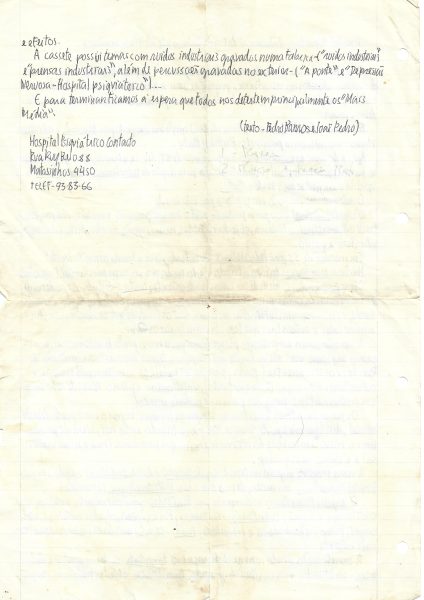 e efeitos.
A cassete possui temas com ruídos industriais gravados numa fábrica-("ruídos industriais"
e "prensas industriais", além de percussões gravadas no exterior-("A ponte" e "Depressão
Nervosa-Hospital psiquiátrico")...
E para terminar ficamos à espera que todos nos detestem principalmente os "Mass
Média".
(texto-Pedro Ramos e José Pedro)
Hospital Psiquiátrico Contacto
Rua Ruy Belo 88
Matosinhos 4450
Telef-93-83-66